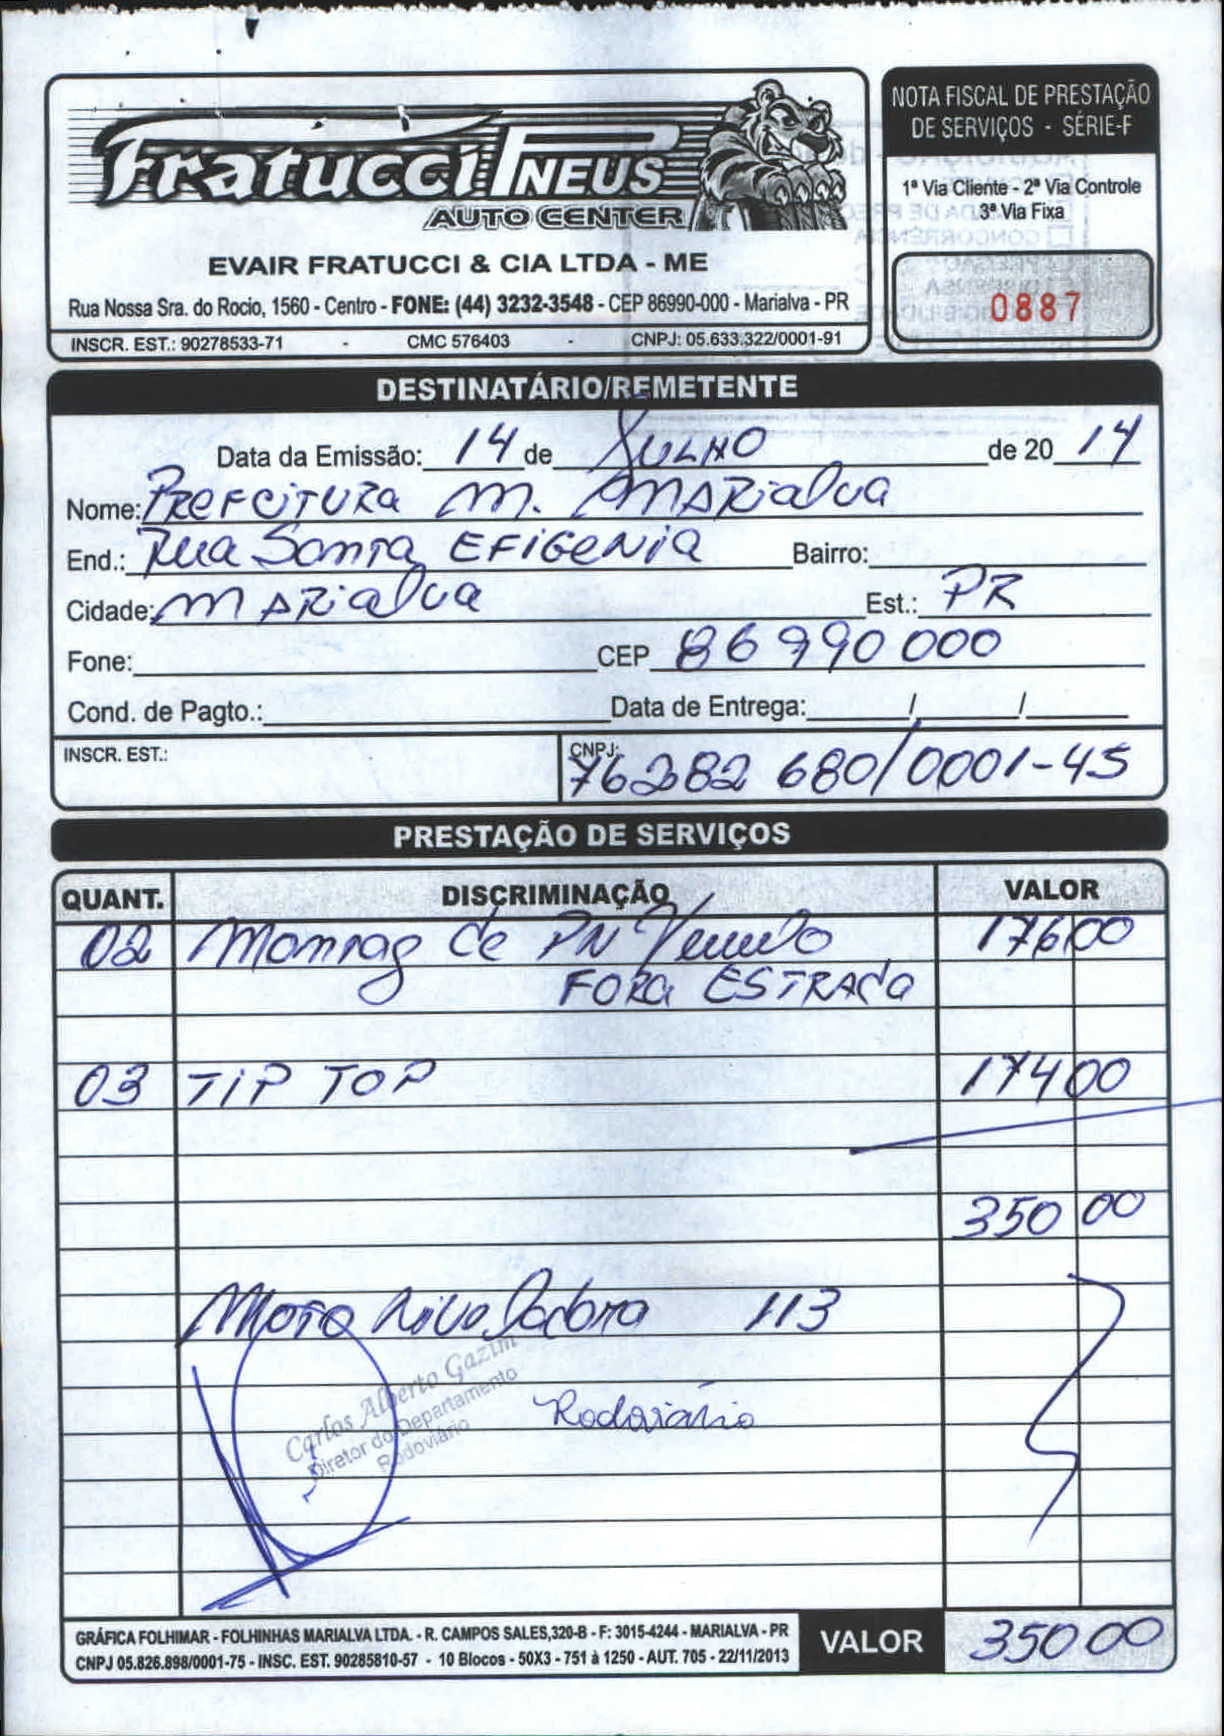 Fratucci PNEUS
AUTO CENTER
EVAIR FRATUCCI & CIA LTDA - ME
Rua Nossa Sra. do Rocio, 1560 - Centro - FONE: (44) 3232-3548 - CEP 86990-000 - Marialva - PR
INSCR. EST.: 90278533-71 - CMC 576403 - CNPJ: 05.633.322/0001-91
NOTA FISCAL DE PRESTAÇÃO
DE SERVIÇOS - SÉRIE-F
1ª Via Cliente - 2ª Via Controle
3ª Via Fixa
0887
DESTINATÁRIO/REMETENTE
Data da Emissão: 14 de JULHO de 20 14
Nome: PREFEITURA M. MARIALVA
End.: Rua Santa EFIGENIA Bairro:
Cidade: MARIALVA Est.: PR
Fone: CEP 86990000
Cond. de Pagto.: Data de Entrega: / /
INSCR. EST.: CNPJ: 76282 680/0001-45
PRESTAÇÃO DE SERVIÇOS
QUANT. DISCRIMINAÇÃO VALOR
02 Montag de PN 17600
FORA ESTRADA
03 TIP TOP 17400
350 00
Moto Niveladora 113
Carlos Alberto Gazim
Diretor do Departamento
Rodoviário
Rodoviário
GRÁFICA FOLHIMAR - FOLHINHAS MARIALVA LTDA. - R. CAMPOS SALES,320-B - F: 3015-4244 - MARIALVA - PR
CNPJ 05.826.898/0001-75 - INSC. EST. 90285810-57 - 10 Blocos - 50X3 - 751 à 1250 - AUT. 705 - 22/11/2013
VALOR 350 00